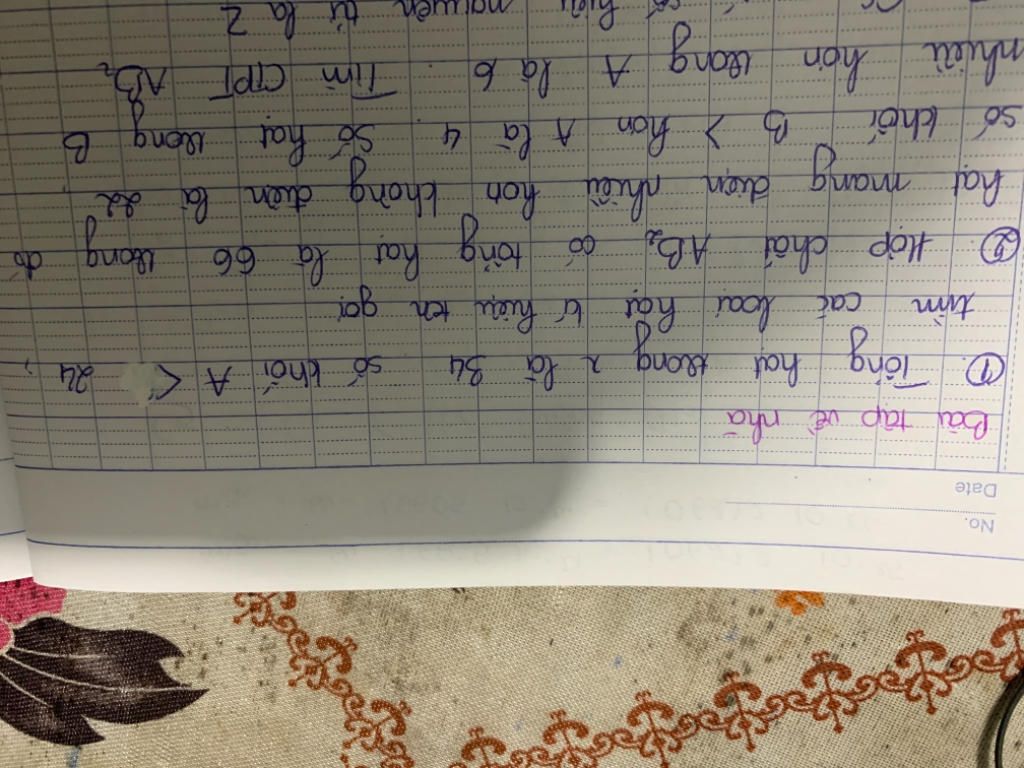 No.
Date
Bài tập về nhà
① Tổng hạt trong 2 là 34 số khối A < 24,
tìm các loại hạt kí hiệu tên gọi
② Hợp chất AB₂ có tổng hạt là 66 trong đó
hạt mang điện nhiều hơn không điện là 22,
số khối B > hơn A là 4. Số hạt trong B
nhiều hơn trong A là 6. Tìm CTPT AB₂
số hiệu nguyên tử là Z